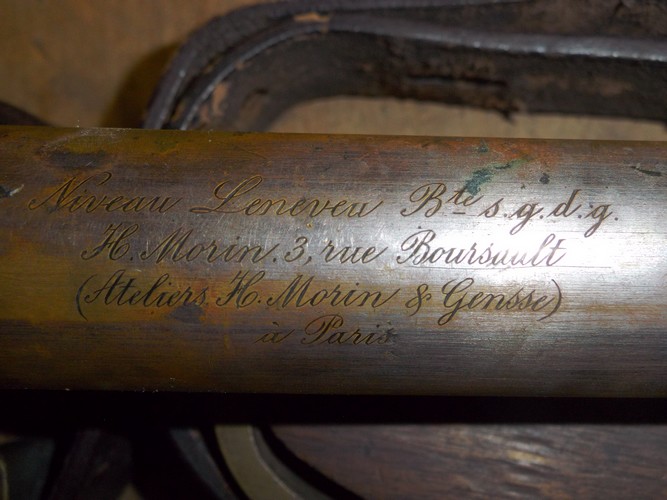 Niveau Leneveu Bte s.g.d.g.
H. Morin. 3, rue Boursault
(Ateliers H. Morin & Gensse)
à Paris